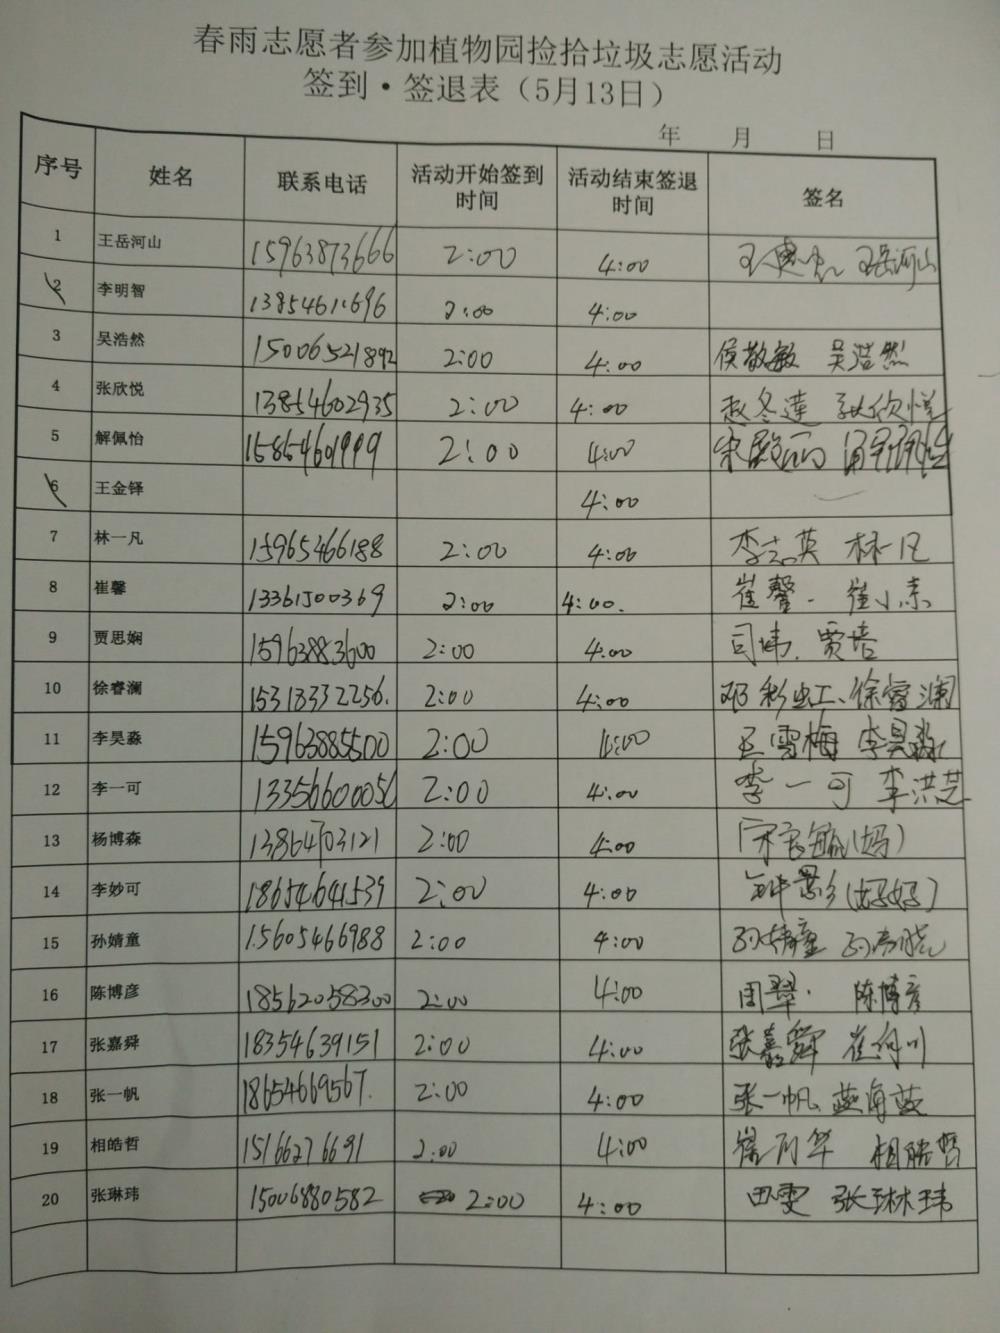 春雨志愿者参加植物园捡拾垃圾志愿活动
签到·签退表（5月13日）
年 月 日
序号 姓名 联系电话 活动开始签到时间 活动结束签退时间 签名
1 王岳河山 15963873666 2:00 4:00 王岳河山
2 李明智 2:00 4:00
3 吴浩然 15006521892 2:00 4:00 侯敬敏 吴浩然
4 张欣悦 13854602935 2:00 4:00 赵冬莲 张欣悦
5 解佩怡 15854601999 2:00 4:00 解佩怡
6 王金铎 4:00
7 林一凡 15965466188 2:00 4:00 李志英 林一凡
8 崔馨 13361500369 2:00 4:00. 崔馨. 崔小素
9 贾思娴 15963883600 2:00 4:00 司玮、贾培
10 徐睿澜 15313332256. 2:00 4:00 邓彩虹、徐睿澜
11 李昊淼 15963885500 2:00 4:00 王雪梅 李昊淼
12 李一可 2:00 4:00 李一可 李洪芝
13 杨博森 13864703121 2:00 4:00 (妈)
14 李妙可 18654641539 2:00 4:00
15 孙婧童 15605466988 2:00 4:00 孙婧童
16 陈博彦 18562058300 2:00 4:00 周翠. 陈博彦
17 张嘉舜 18354639151 2:00 4:00 张嘉舜
18 张一帆 18654669567. 2:00 4:00 张一帆
19 相皓哲 15166276691 2:00 4:00 相皓哲
20 张琳玮 15006880582 2:00 4:00 田雯 张琳玮